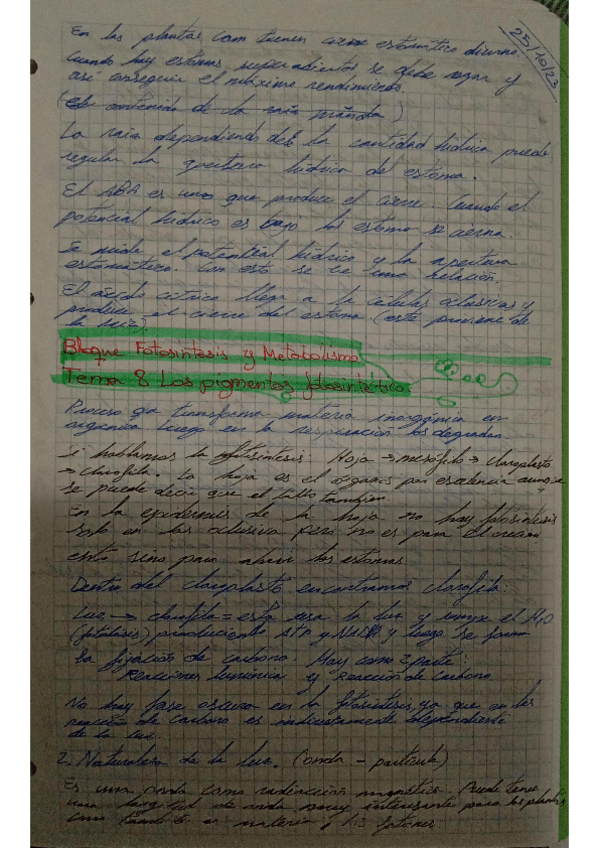 25/10/23
En las plantas cam tienen cierre estomático diurno.
Cuando hay estomas superadientes se debe regar y
así conseguir el máximo rendimiento.
(El contenido de la raíz mañana)
La raíz dependiendo de la cantidad hídrica puede
regular la apertura hídrica del estoma.
El ABA es uno que produce el cierre. Cuando el
potencial hídrico es bajo los estoma se cierra.
Se mide el potential hídrico y la apertura
estomática. Con esto se ve una relación.
El ácido cítrico llega a la células oclusivas y
produce el cierre del estoma (este proviene de
la raíz).
Bloque Fotosíntesis y Metabolismo
Tema 8 Los pigmentos fotosintético
Proceso que transforma materia inorgánica en
orgánica luego en la respiración los degradan.
Si hablamos la fotosíntesis: Hoja → mesófilo → cloroplasto
→ clorofila. La hoja es el órgano por excelencia aunque
se puede decir que el tallo también.
En la epidermis de la hoja no hay fotosíntesis
solo en las oclusiva pero no es para el creci
ento sino para abrir los estomas
Dentro del cloroplasto encontramos clorofila:
Luz → clorofila = esta usa la luz y rompe el H2O
(fotólisis) produciento ATP y NADPH y luego se forma
la fijación de carbono. Hay como 2 parte:
Reacciones lumínica y Reacción de Carbono
No hay fase oscura en la fotosíntesis ya que en las
reacción de carbono es indirectamente dependiente
de la luz.
2. Naturaleza de la luz. (onda - partícula)
Es una onda como radiación magnética. Puede tener
una longitud de onda muy interesante para las plantas
como también es materia, los fotones.